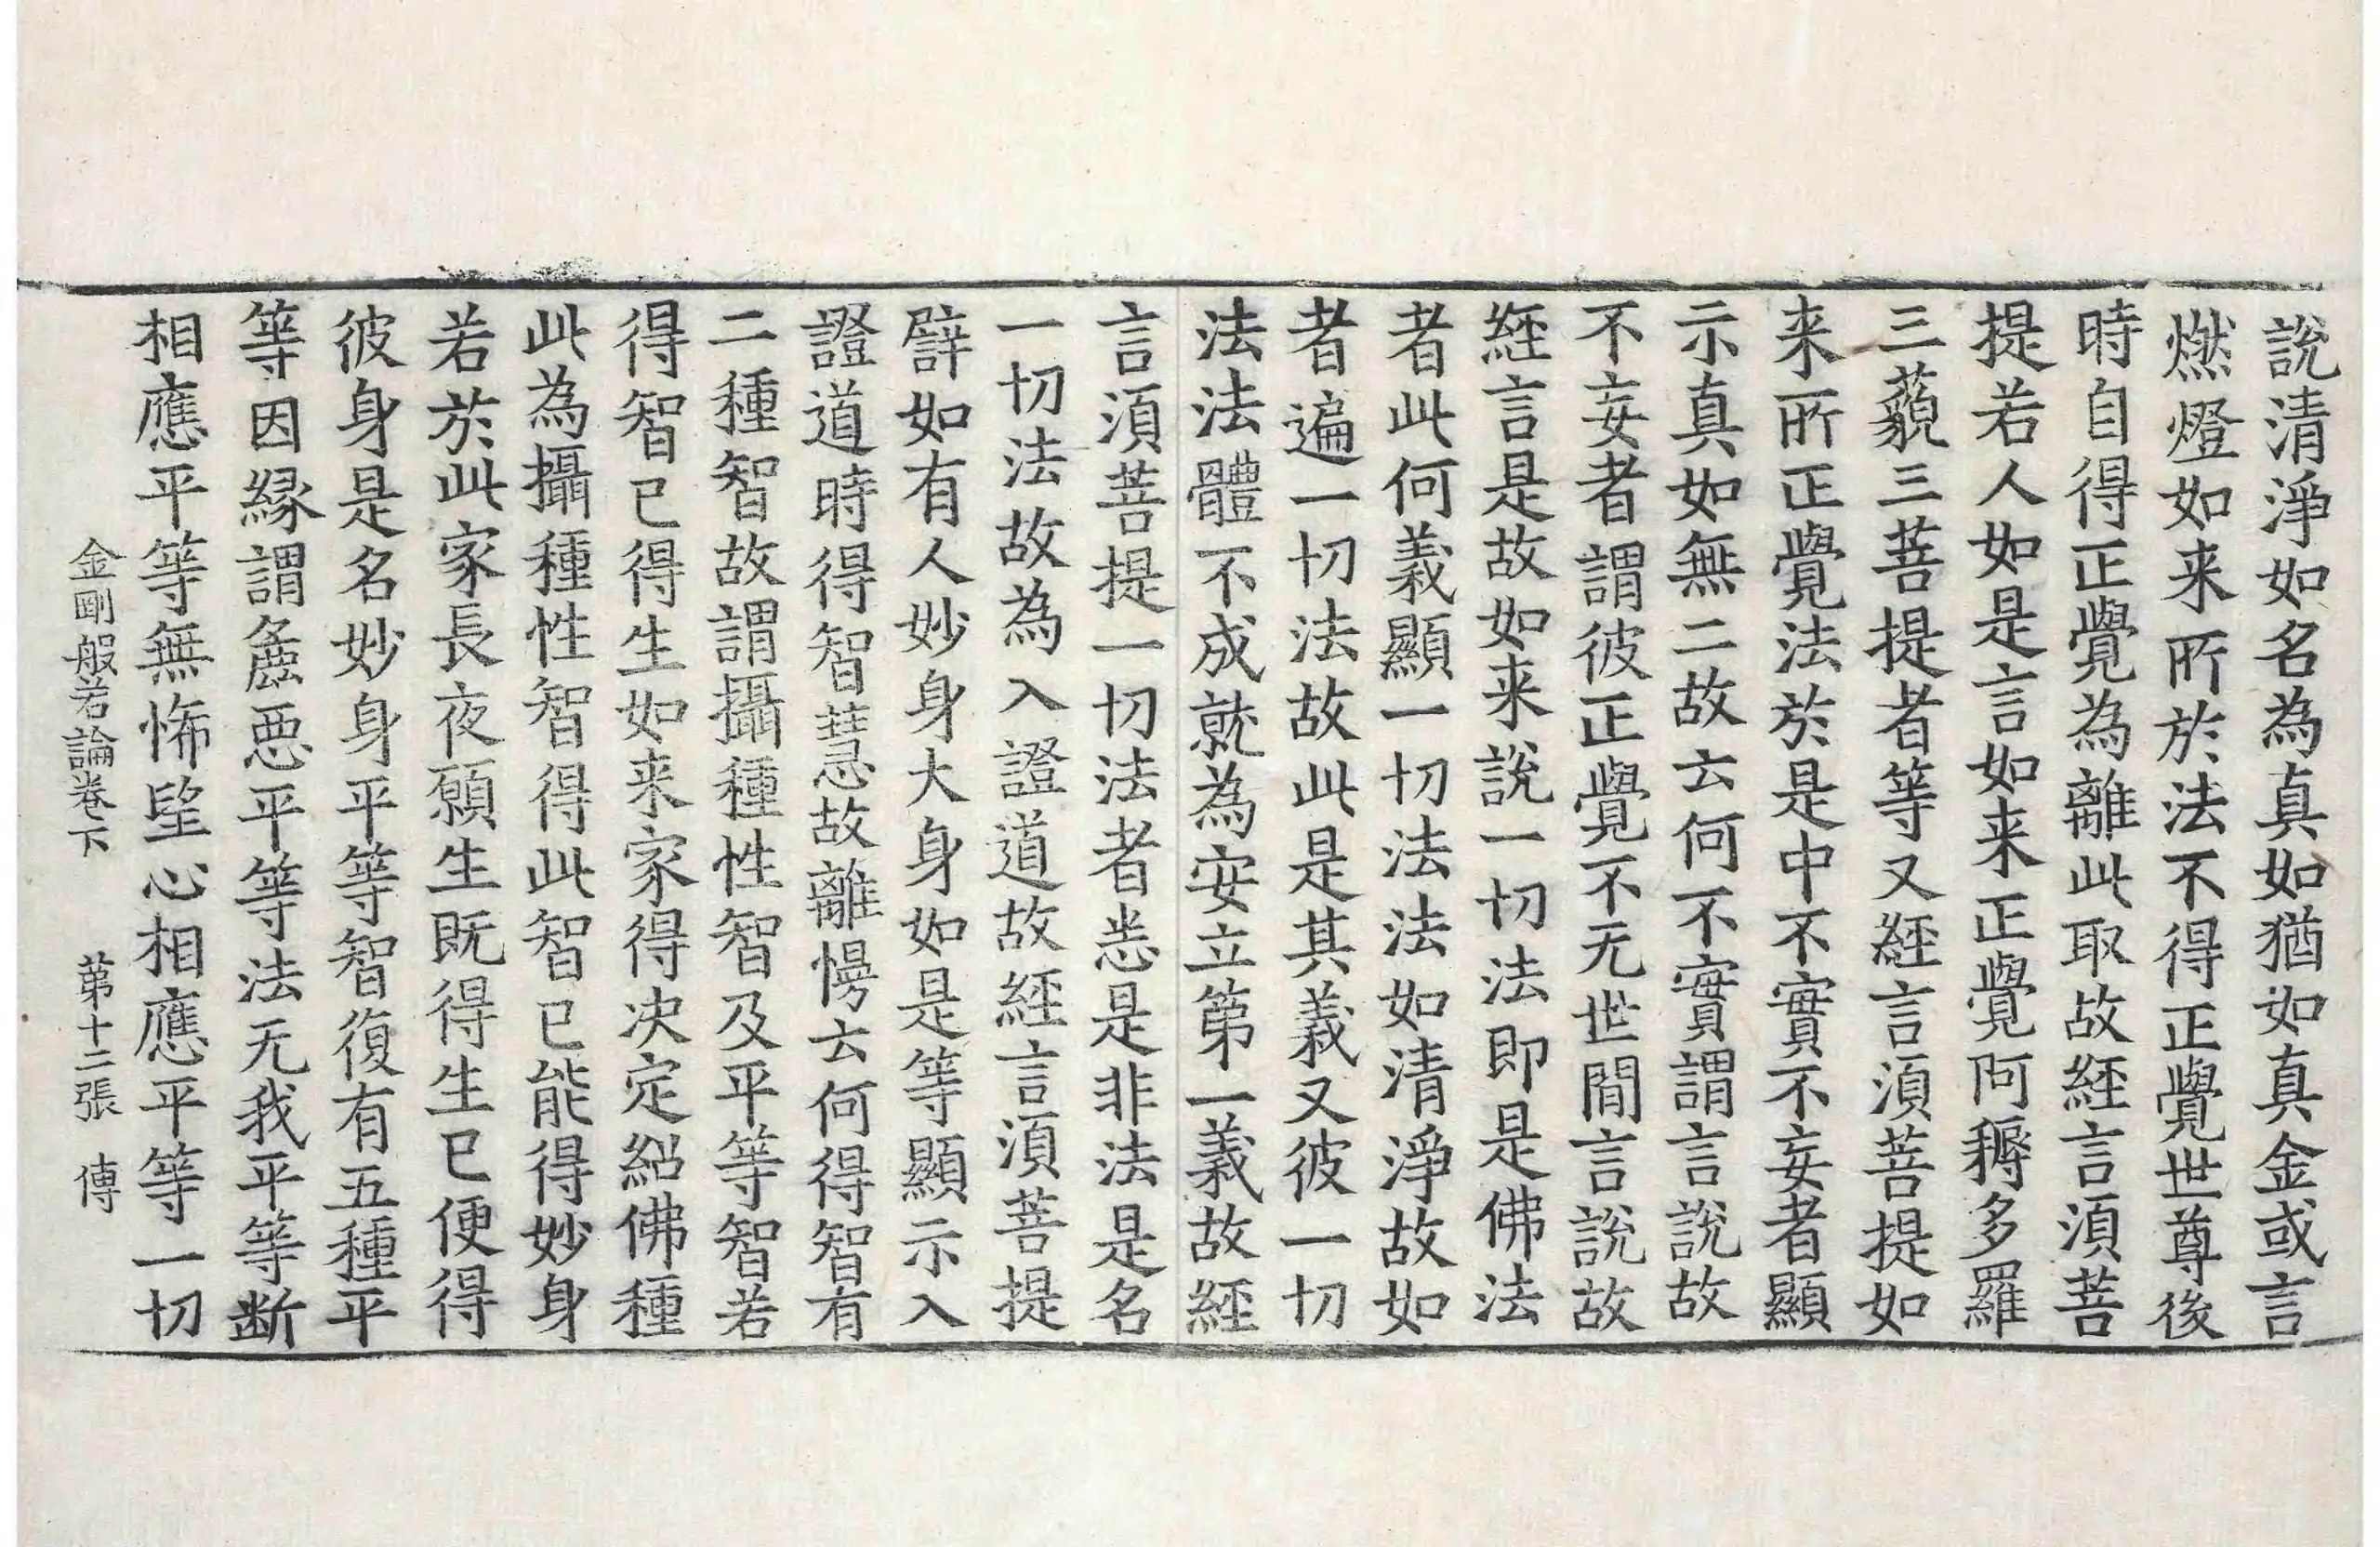 說清淨如名為真如猶如真金或言
燃燈如来所於法不得正覺世尊後
時自得正覺為離此取故経言湏菩
提若人如是言如来正覺阿耨多羅
三藐三菩提者等又経言湏菩提如
来所正覺法於是中不實不妄者顯
示真如無二故云何不實謂言說故
不妄者謂彼正覺不无世間言說故
経言是故如来說一切法即是佛法
者此何義顯一切法法如清淨故如
者遍一切法故此是其義又彼一切
法法體不成就為安立第一義故経
言湏菩提一切法者悉是非法是名
一切法故為入證道故経言湏菩提
譬如有人妙身大身如是等顯示入
證道時得智慧故離慢云何得智有
二種智故謂攝種性智及平等智若
得智已得生如来家得决定紹佛種
此為攝種性智得此智已能得妙身
若於此家長夜願生既得生已便得
彼身是名妙身平等智復有五種平
等因縁謂麁惡平等法无我平等断
相應平等無悕望心相應平等一切
金剛般若論卷下　第十二張　傅